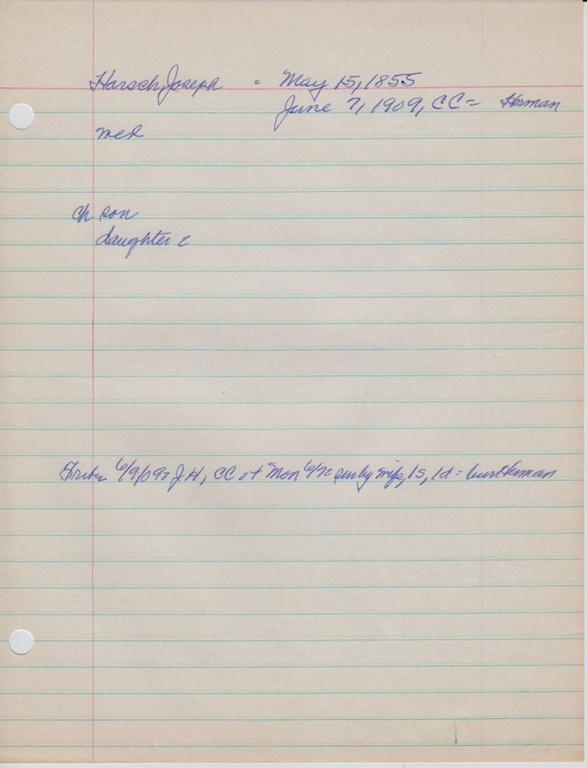 Harsch, Joseph - May 15, 1855
June 7, 1909, CC = Herman
med
ch son
daughter c
6/9/09 = J H, CC at Mon 6/7 = sur by wife, 1s, 1d = bur Herman